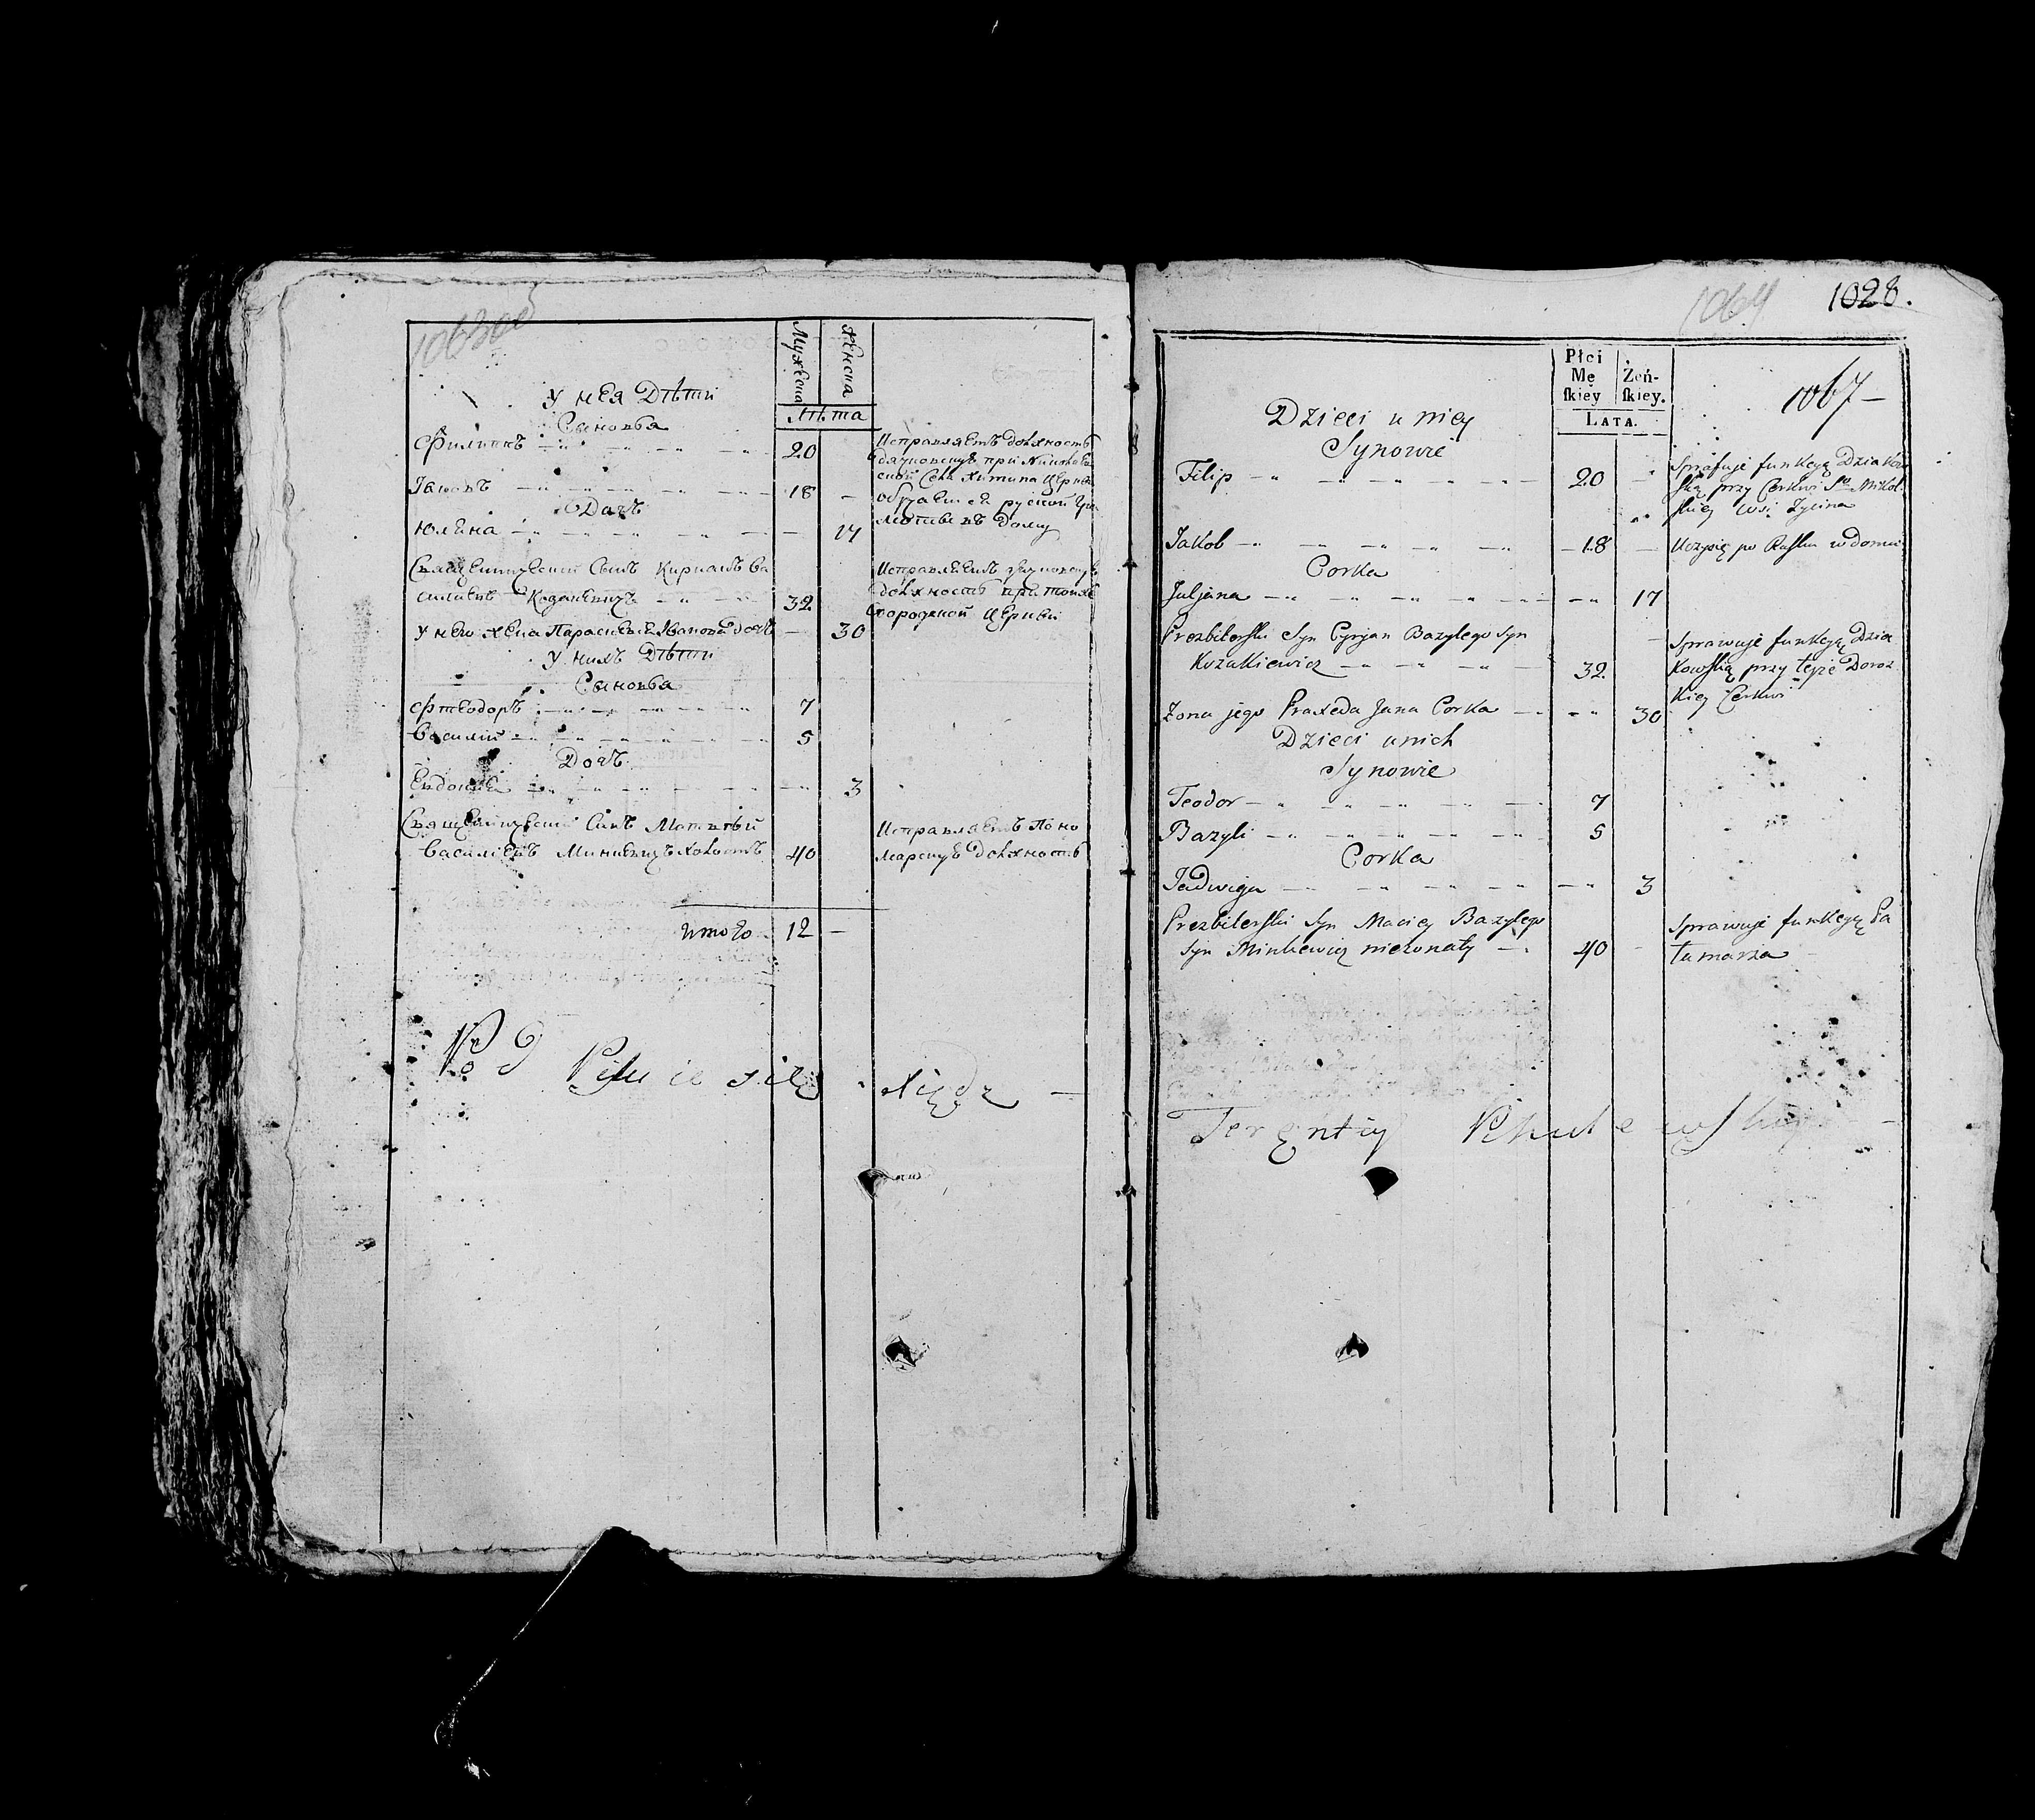 1063об
Мужеска
Женска
Лѣта
У нея Дѣти
Сыновья
Филиппъ 20
Исправляетъ должность
дячковскую при Николаев
ской села Житина Церкви
Іаковъ 18
обучается руской гра
мотѣ въ дому
Дочь
Юлѣяна 17
Священническій Сынъ Киріакъ Ва
сильевъ Козакевичъ 32
Исправляетъ дячковскую
должность при той же
Дорожкой Церкви
У него жена Параскевія Иванова дочь 30
У нихъ Дѣти
Сыновья
Фтеодоръ 7
Василій 5
Дочь
Евдокія 3
Священническій Сынъ Матвѣй
Василіевъ Минкевичъ холостъ 40
Исправляетъ Поно
марскую должность
итого 12
Pod Pisuie się Xiądz
1064 1028.
1067
Płci
Mę
skiey
Żeń-
skiey.
LATA.
Dzieci u niey
Synowie
Filip 20
Sprawuje funkcyą Dziakow
ską przy Cerkwi Sgo Mikol
skiey wsi Zycina
Jakob 18
Uczysię po Rusku w domu
Corka
Juljana 17
Prezbiterski Syn Cyryan Bazylego Syn
Kozakiewicz 32
Sprawuje funkcyą Dzia
kowską przy teyże Doroz
kiey Cerkwi
Zona jego Praxeda Jana Corka 30
Dzieci u nich
Synowie
Teodor 7
Bazyli 5
Corka
Jadwiga 3
Prezbiterski Syn Maciey Bazylego
Syn Minkiewicz nieżonaty 40
Sprawuje funkcyą Pa
lamarza
Terentiy